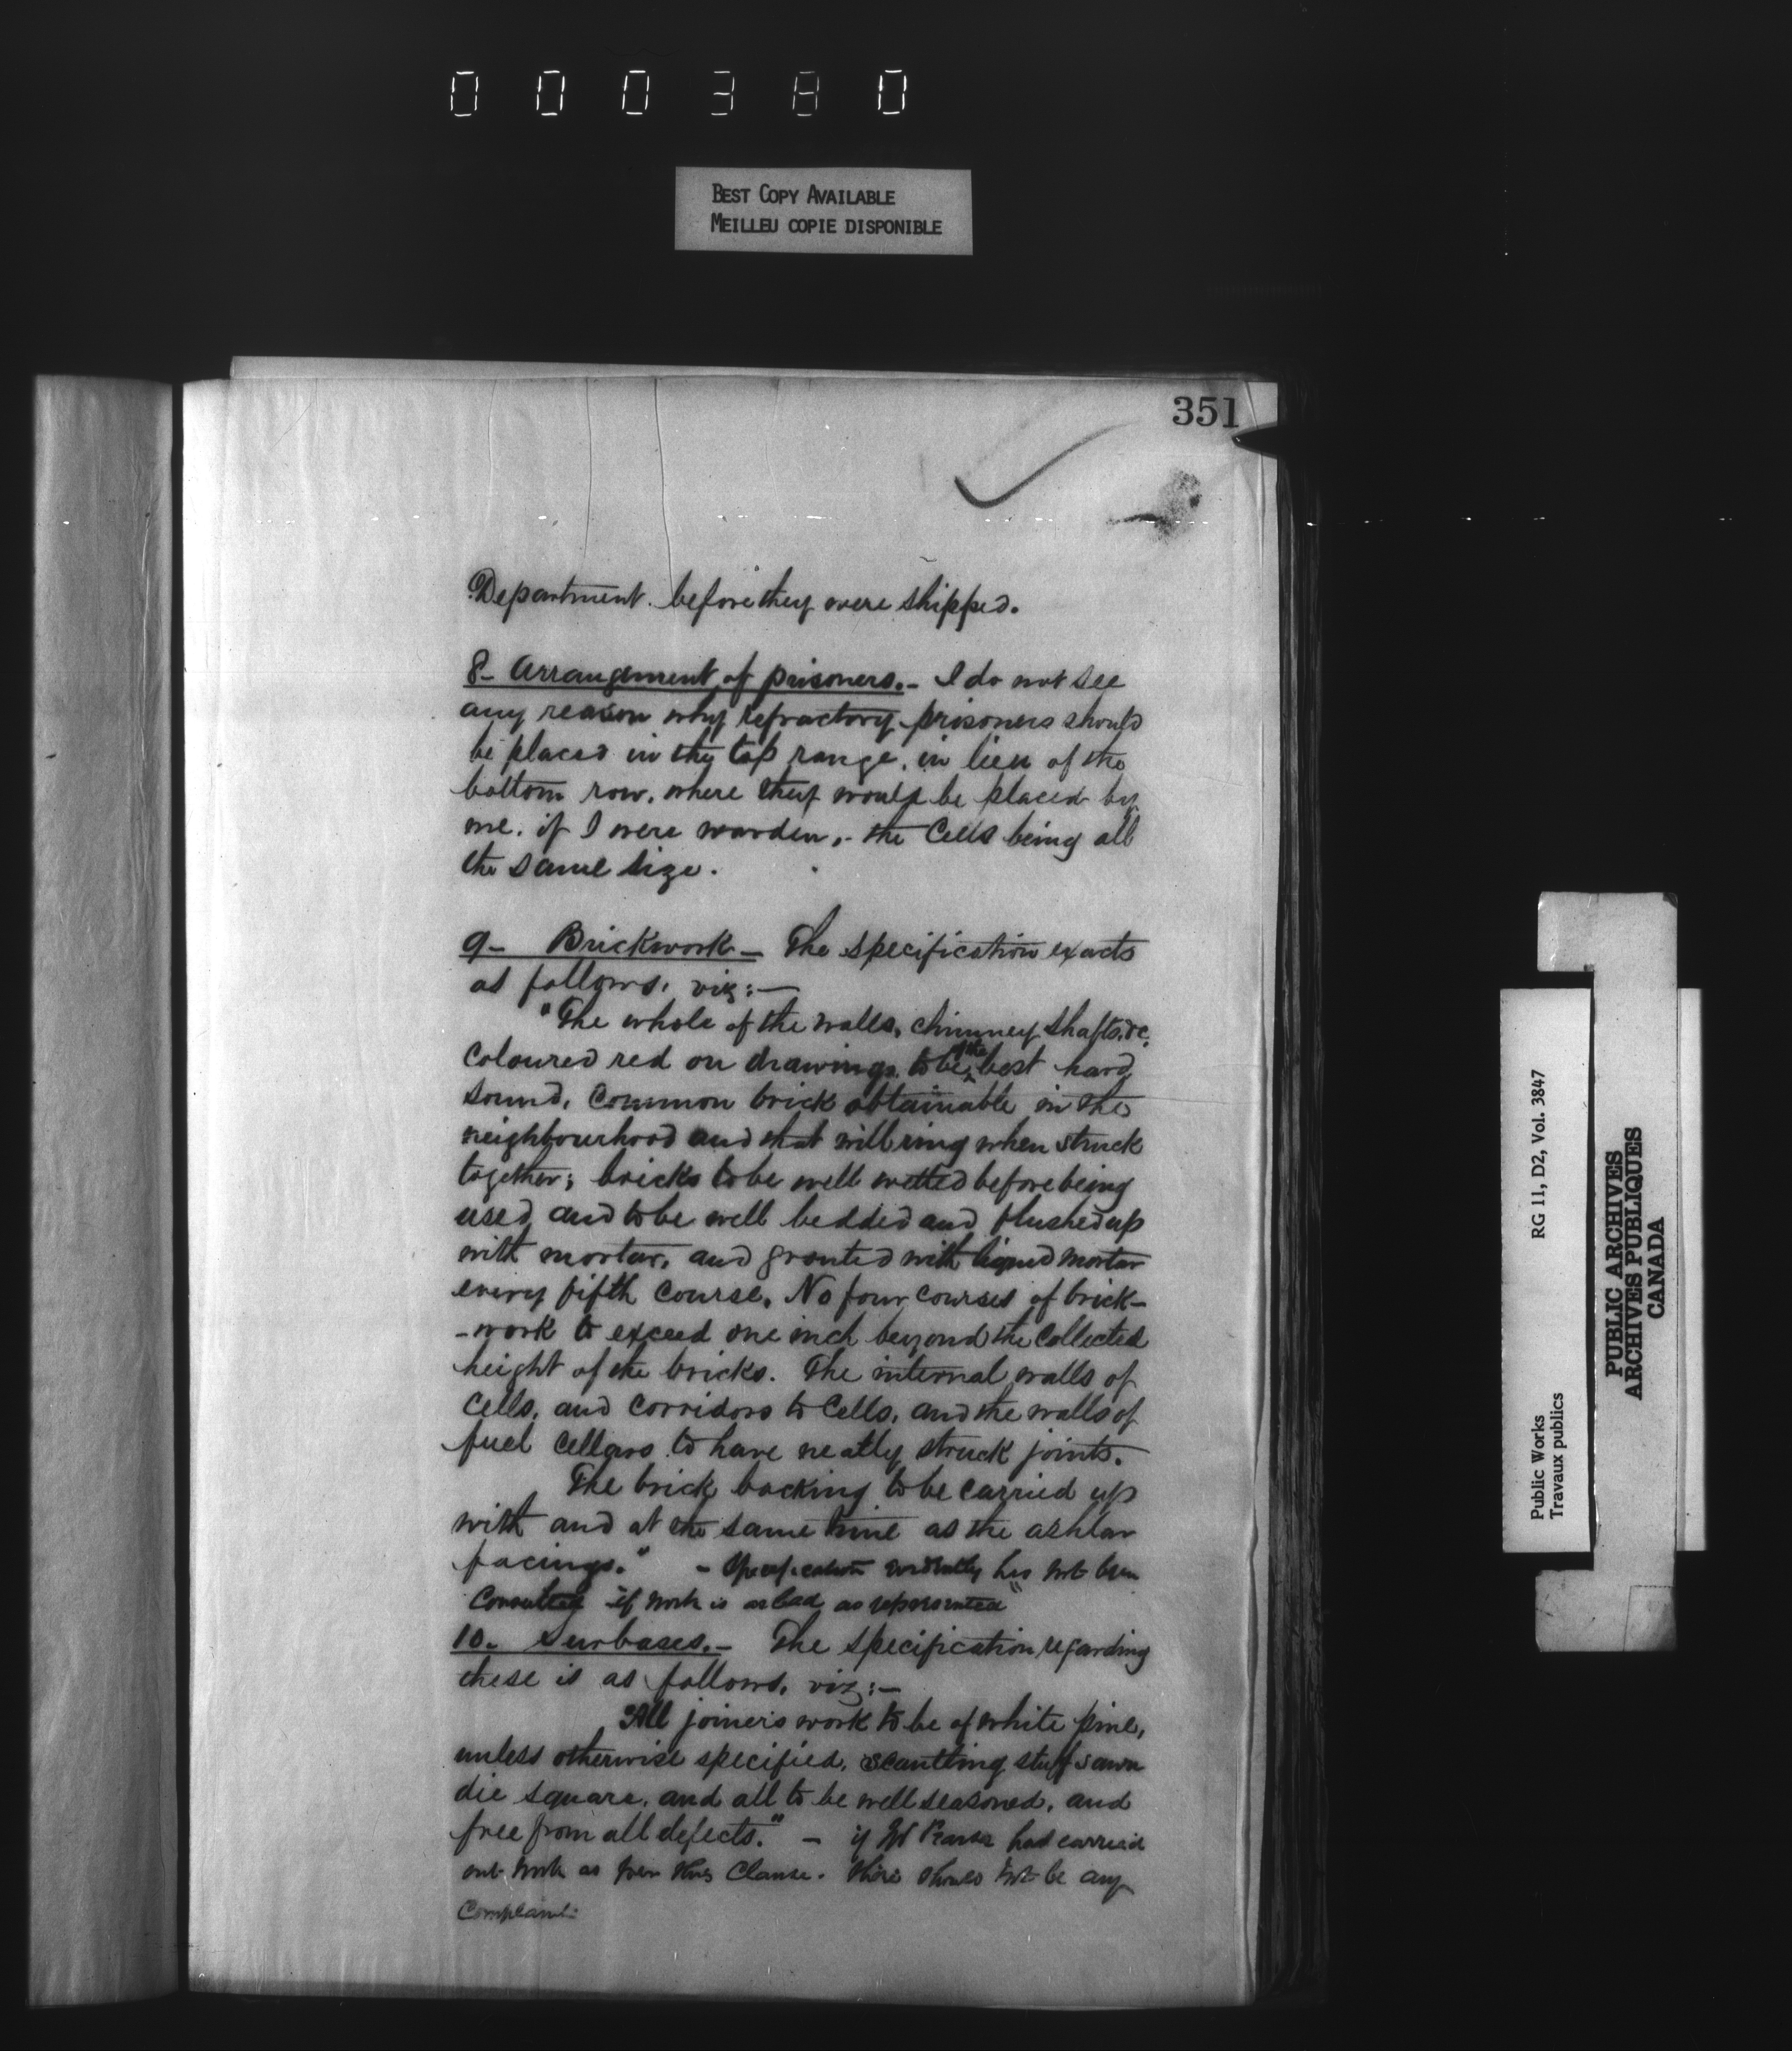 000380
BEST COPY AVAILABLE
MEILLEU COPIE DISPONIBLE
351
Department before they were shipped.
8- Arrangement of prisoners.- I do not see
any reason why refractory prisoners should
be placed in the top range, in lieu of the
bottom row, where they would be placed by
me, if I were warden,- the Cells being all
the same size.
9- Brickwork- The specification exacts
as follows, viz:-
"The whole of the walls, chimney shafts, &c.
coloured red on drawings, to be of the best hard,
sound, common brick obtainable in the
neighbourhood and that will ring when struck
together; bricks to be well wetted before being
used, and to be well bedded and flushed up
with mortar, and grouted with liquid mortar
every fifth course. No four courses of brick-
-work to exceed one inch beyond the collected
height of the bricks. The internal walls of
Cells, and corridors to Cells, and the walls of
fuel cellars to have neatly struck joints.
The brick backing to be carried up
with and at the same time as the ashlar
facings." - Specification evidently has not been
Consulted if work is as bad as represented"
10. Surbases.- The specification regarding
these is as follows, viz:-
"All joiners work to be of white pine,
unless otherwise specified, scantling stuff sawn
die square, and all to be well seasoned, and
free from all defects." - if had carried
out work as per this Clause. there should not be any
Complaint.
Public Works
Travaux publics
RG 11, D2, Vol. 3847
PUBLIC ARCHIVES
ARCHIVES PUBLIQUES
CANADA